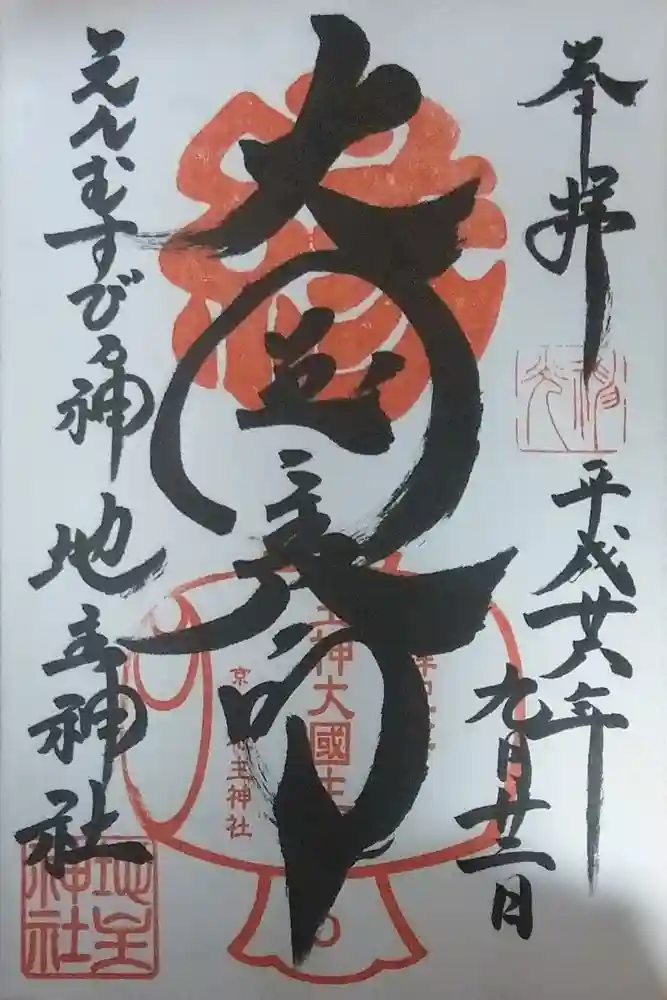 奉拝
平成廿八年
九月廿二日
大国主命
えんむすびの神 地主神社
神大國主
京 主神社
地主神社